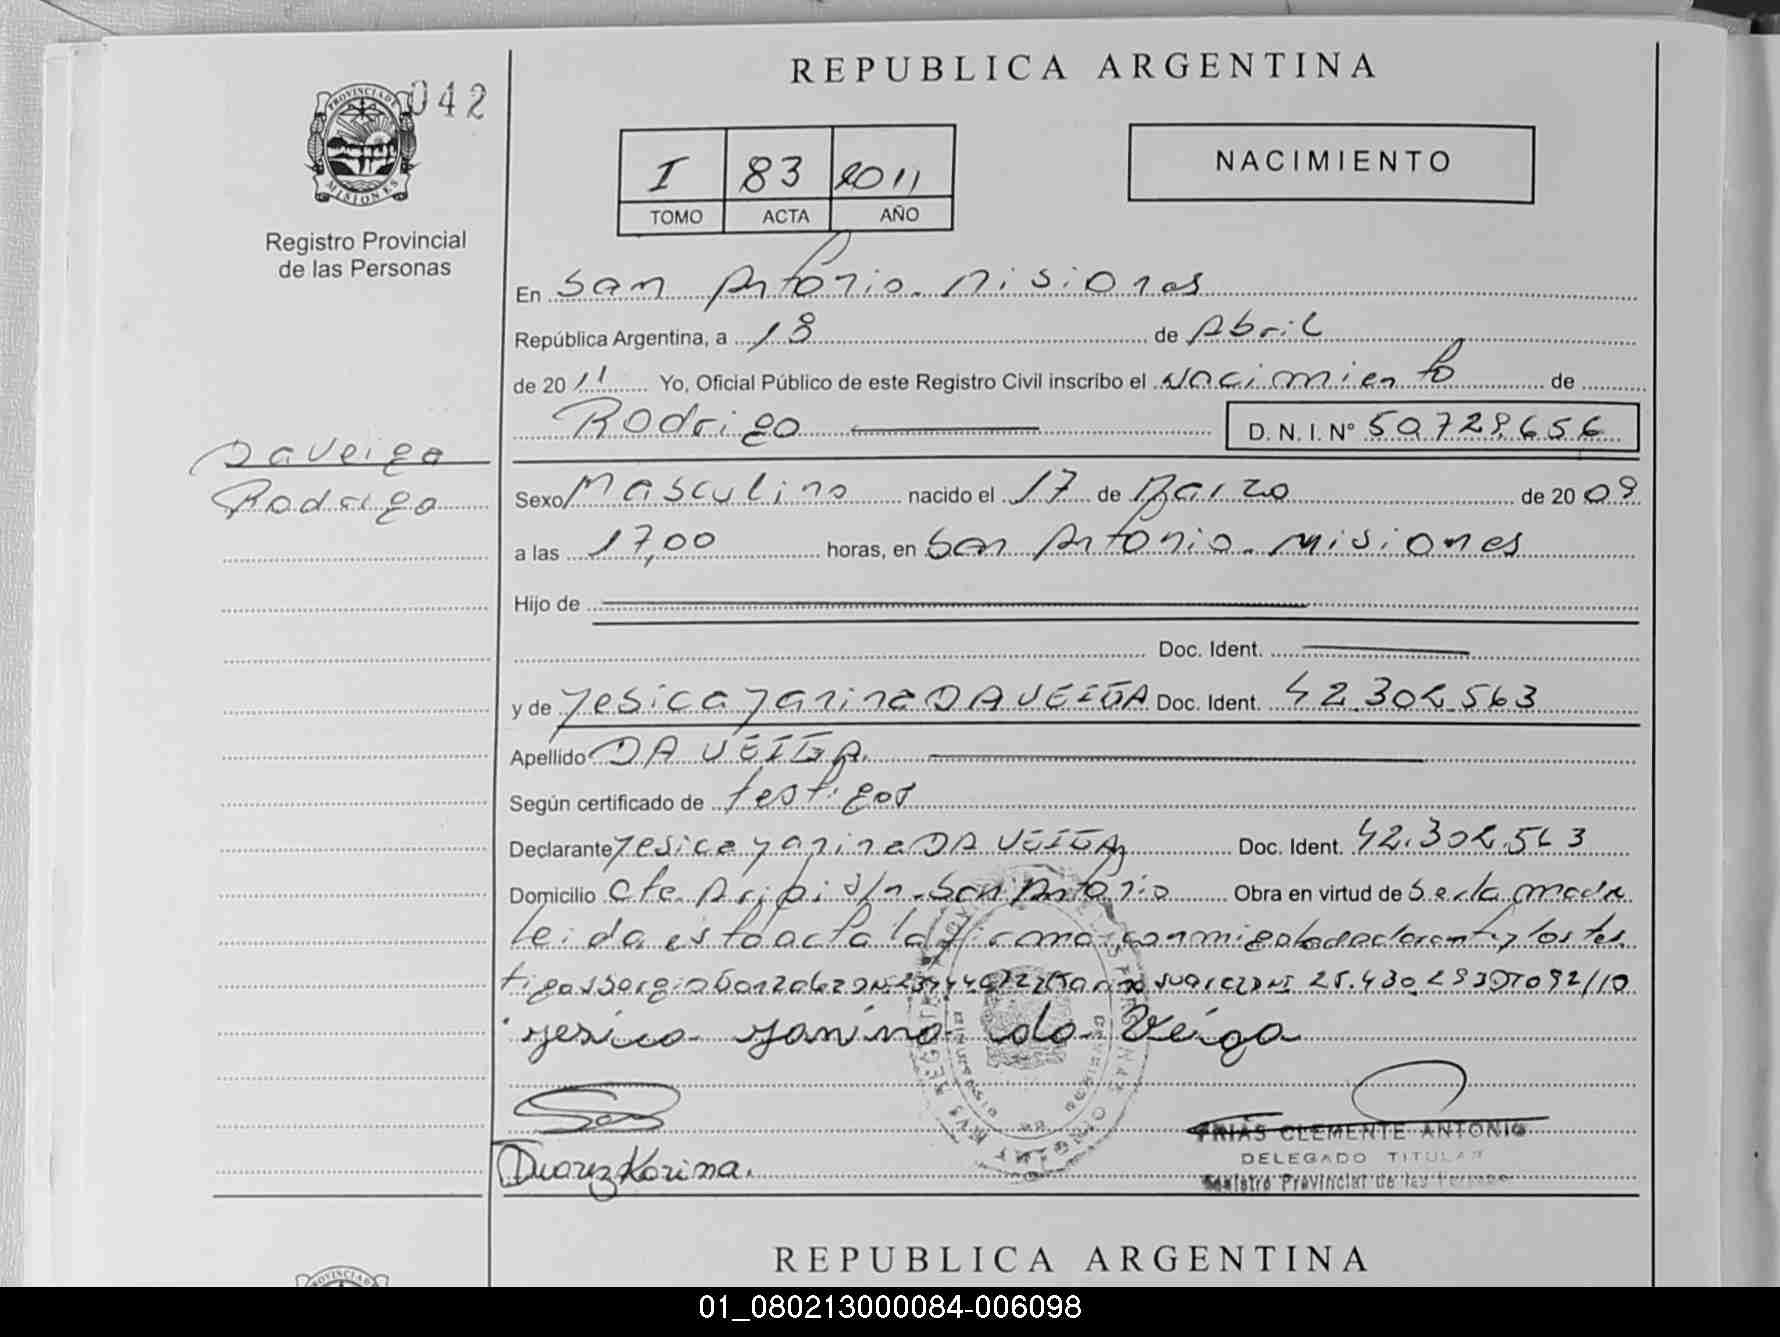 REPUBLICA ARGENTINA
PROVINCIA DE MISIONES
042
Registro Provincial
de las Personas
I 83 2011
TOMO ACTA AÑO
NACIMIENTO
En San Antonio. Misiones
República Argentina, a 18 de Abril
de 2011 Yo, Oficial Público de este Registro Civil inscribo el Nacimiento de
Rodrigo D. N. I. Nº 50.728.656
Da Veiga
Rodrigo
Sexo Masculino nacido el 17 de Marzo de 2009
a las 17,00 horas, en San Antonio. Misiones
Hijo de
Doc. Ident.
y de Yesica Yanina DA VEIGA Doc. Ident. 42.302.563
Apellido DA VEIGA
Según certificado de testigos
Declarante Yesica Yanina DA VEIGA Doc. Ident. 42.302.563
Domicilio Cte. s/n. San Antonio Obra en virtud de Ser la madre
Leida esta acta la firma conmigo la declarante y los tes
tigos Sergio Gonzalez DNI Suarez DNI 25.430.293
Yesica Yanina da Veiga
Suarez Karina.
FRIAS CLEMENTE ANTONIO
DELEGADO TITULAR
Registro Provincial de las Personas
REPUBLICA ARGENTINA
01_080213000084-006098